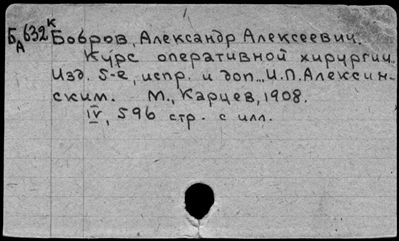 Б 632 К
А
Бобров, Александр Алексеевич.
Курс оперативной хирургии.
Изд. 5-е, испр. и доп... И.П. Алексин-
ским. М., Карцев, 1908.
IV, 596 стр. с илл.